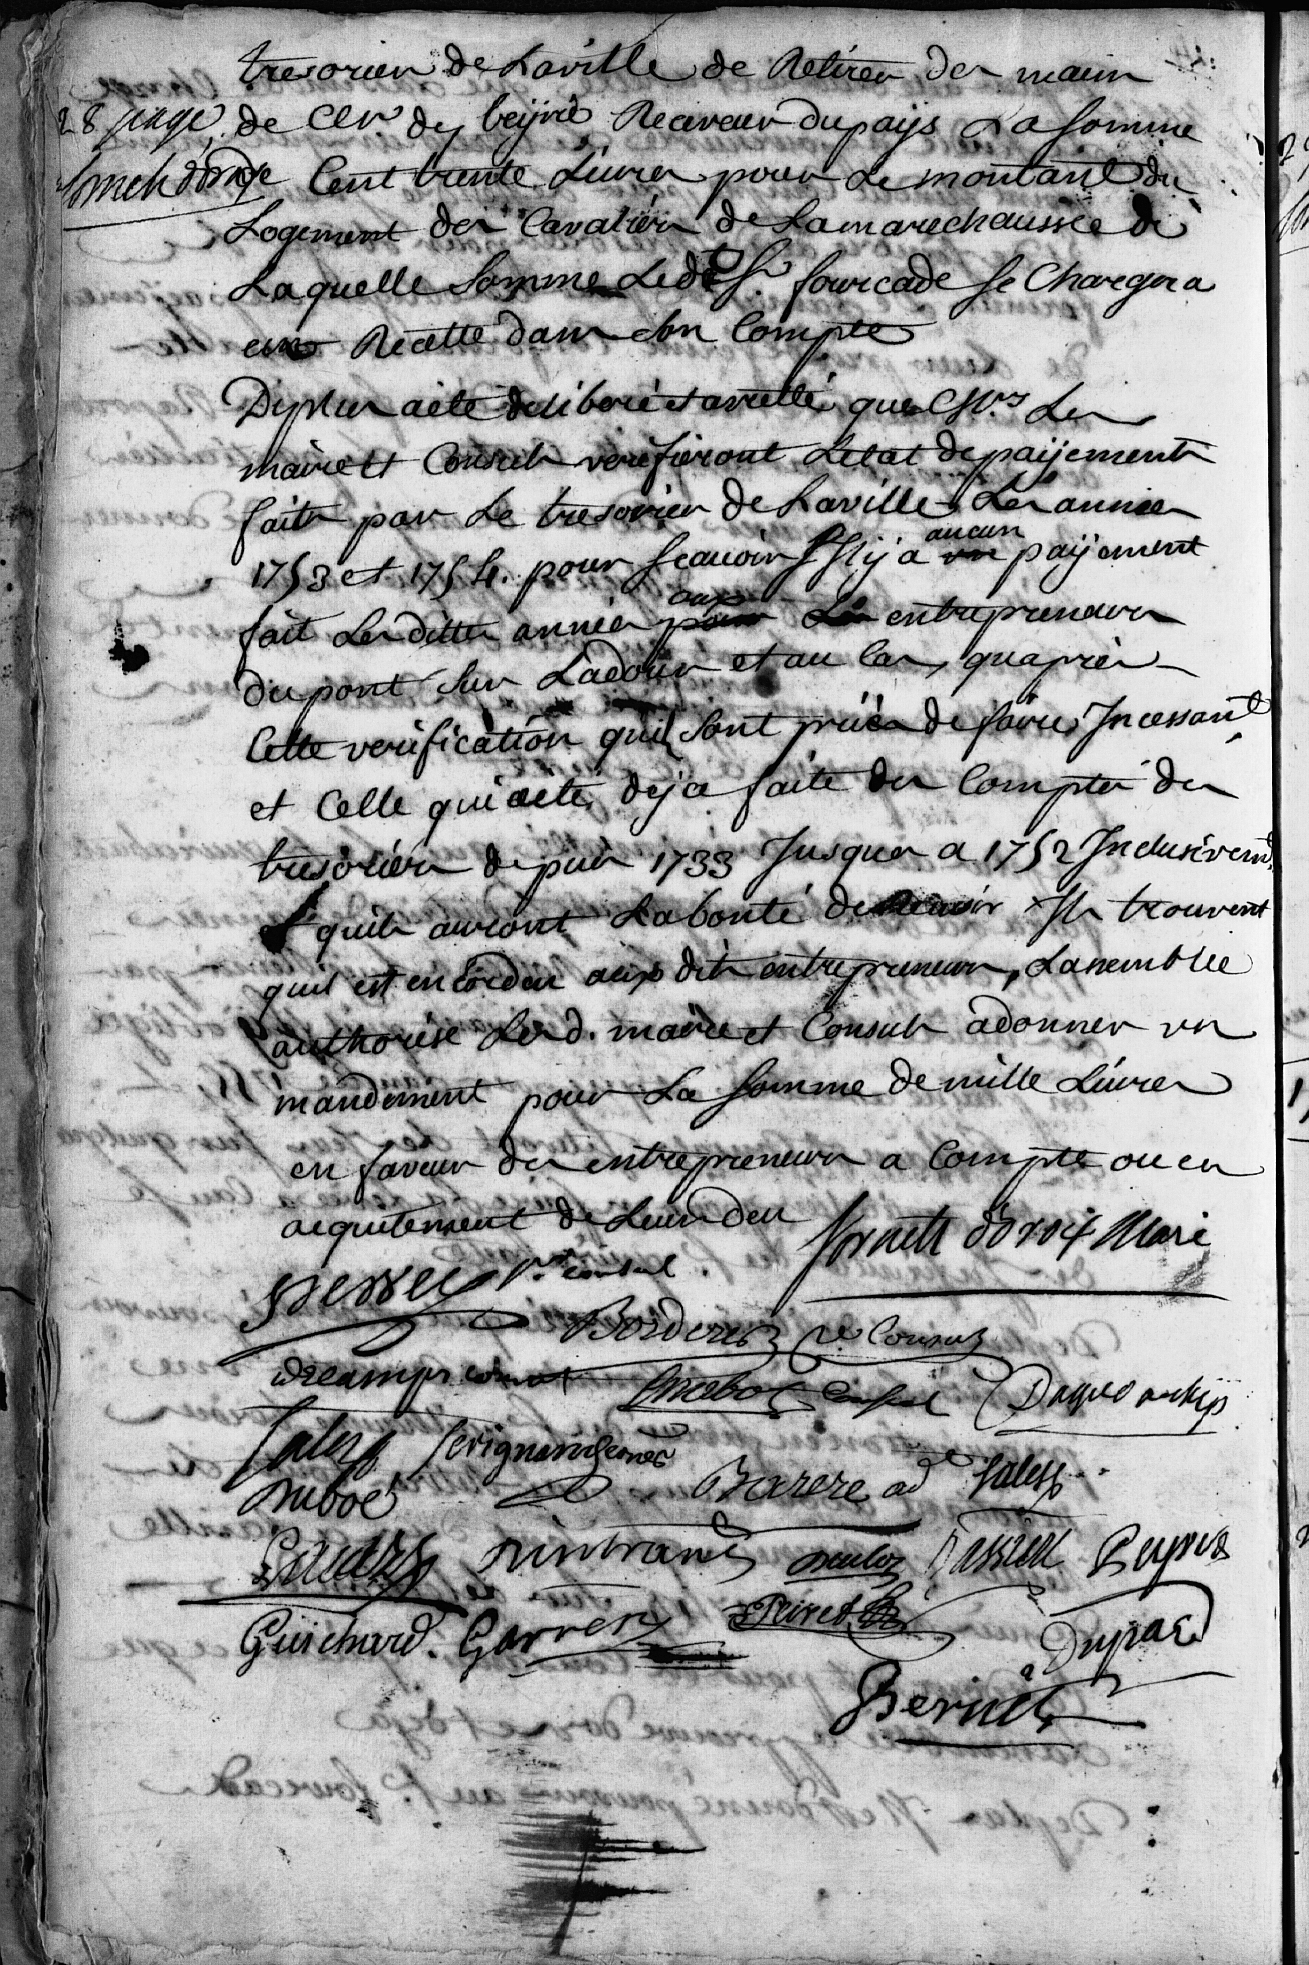 tresorier de Laville de Retirer des mains
28 page de Mr de beyrie Receveur du païs La somme
Cent trente Livres pour Le montant du
Logement des Cavaliers de La marechaussée de
Laquelle somme Ledt Sr. fourcade se Chargera
en Recette dans son Compte
De plus a eté deliberé et arretté que Mrs Les
maire et Consuls verifieront Letat de paijements
faits par Le tresorier de Laville Les années
1753 et 1754. pour scauoir s'il y a aucun paijement
fait Lesdittes années aux entrepreneurs
du pont sur Ladour et au Cas, quaprès
Cette verification quils sont priés de faire Incessant
et Celle qui a eté deja faite des Comptes des
tresoriers depuis 1733 Jusques a 1752 Inclusivemt
quils auront La bonté de Ils trouvent
quil est encor deu aux dits entrepreneurs, Lassemblée
authorise Lesd. maire et Consuls a donner un
mandement pour La somme de mille Livres
en faveur des entrepreneurs a Compte ou en
acquitement de Leur deu
Maire
1er consul
Borderes Consul
decamps consul
Consul
Sales
Duboé Barere ad Saless
Guichard. Garres Peiret Dupas
Bernet